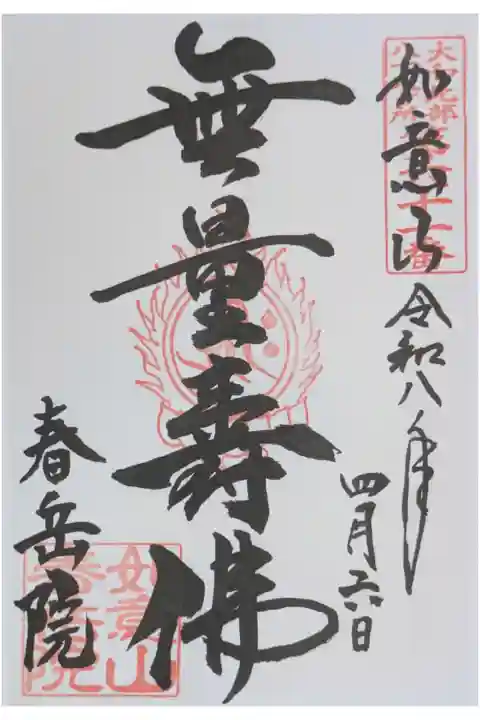 如意山
令和八年
四月六日
無量壽佛
春岳院
如意山
春岳院